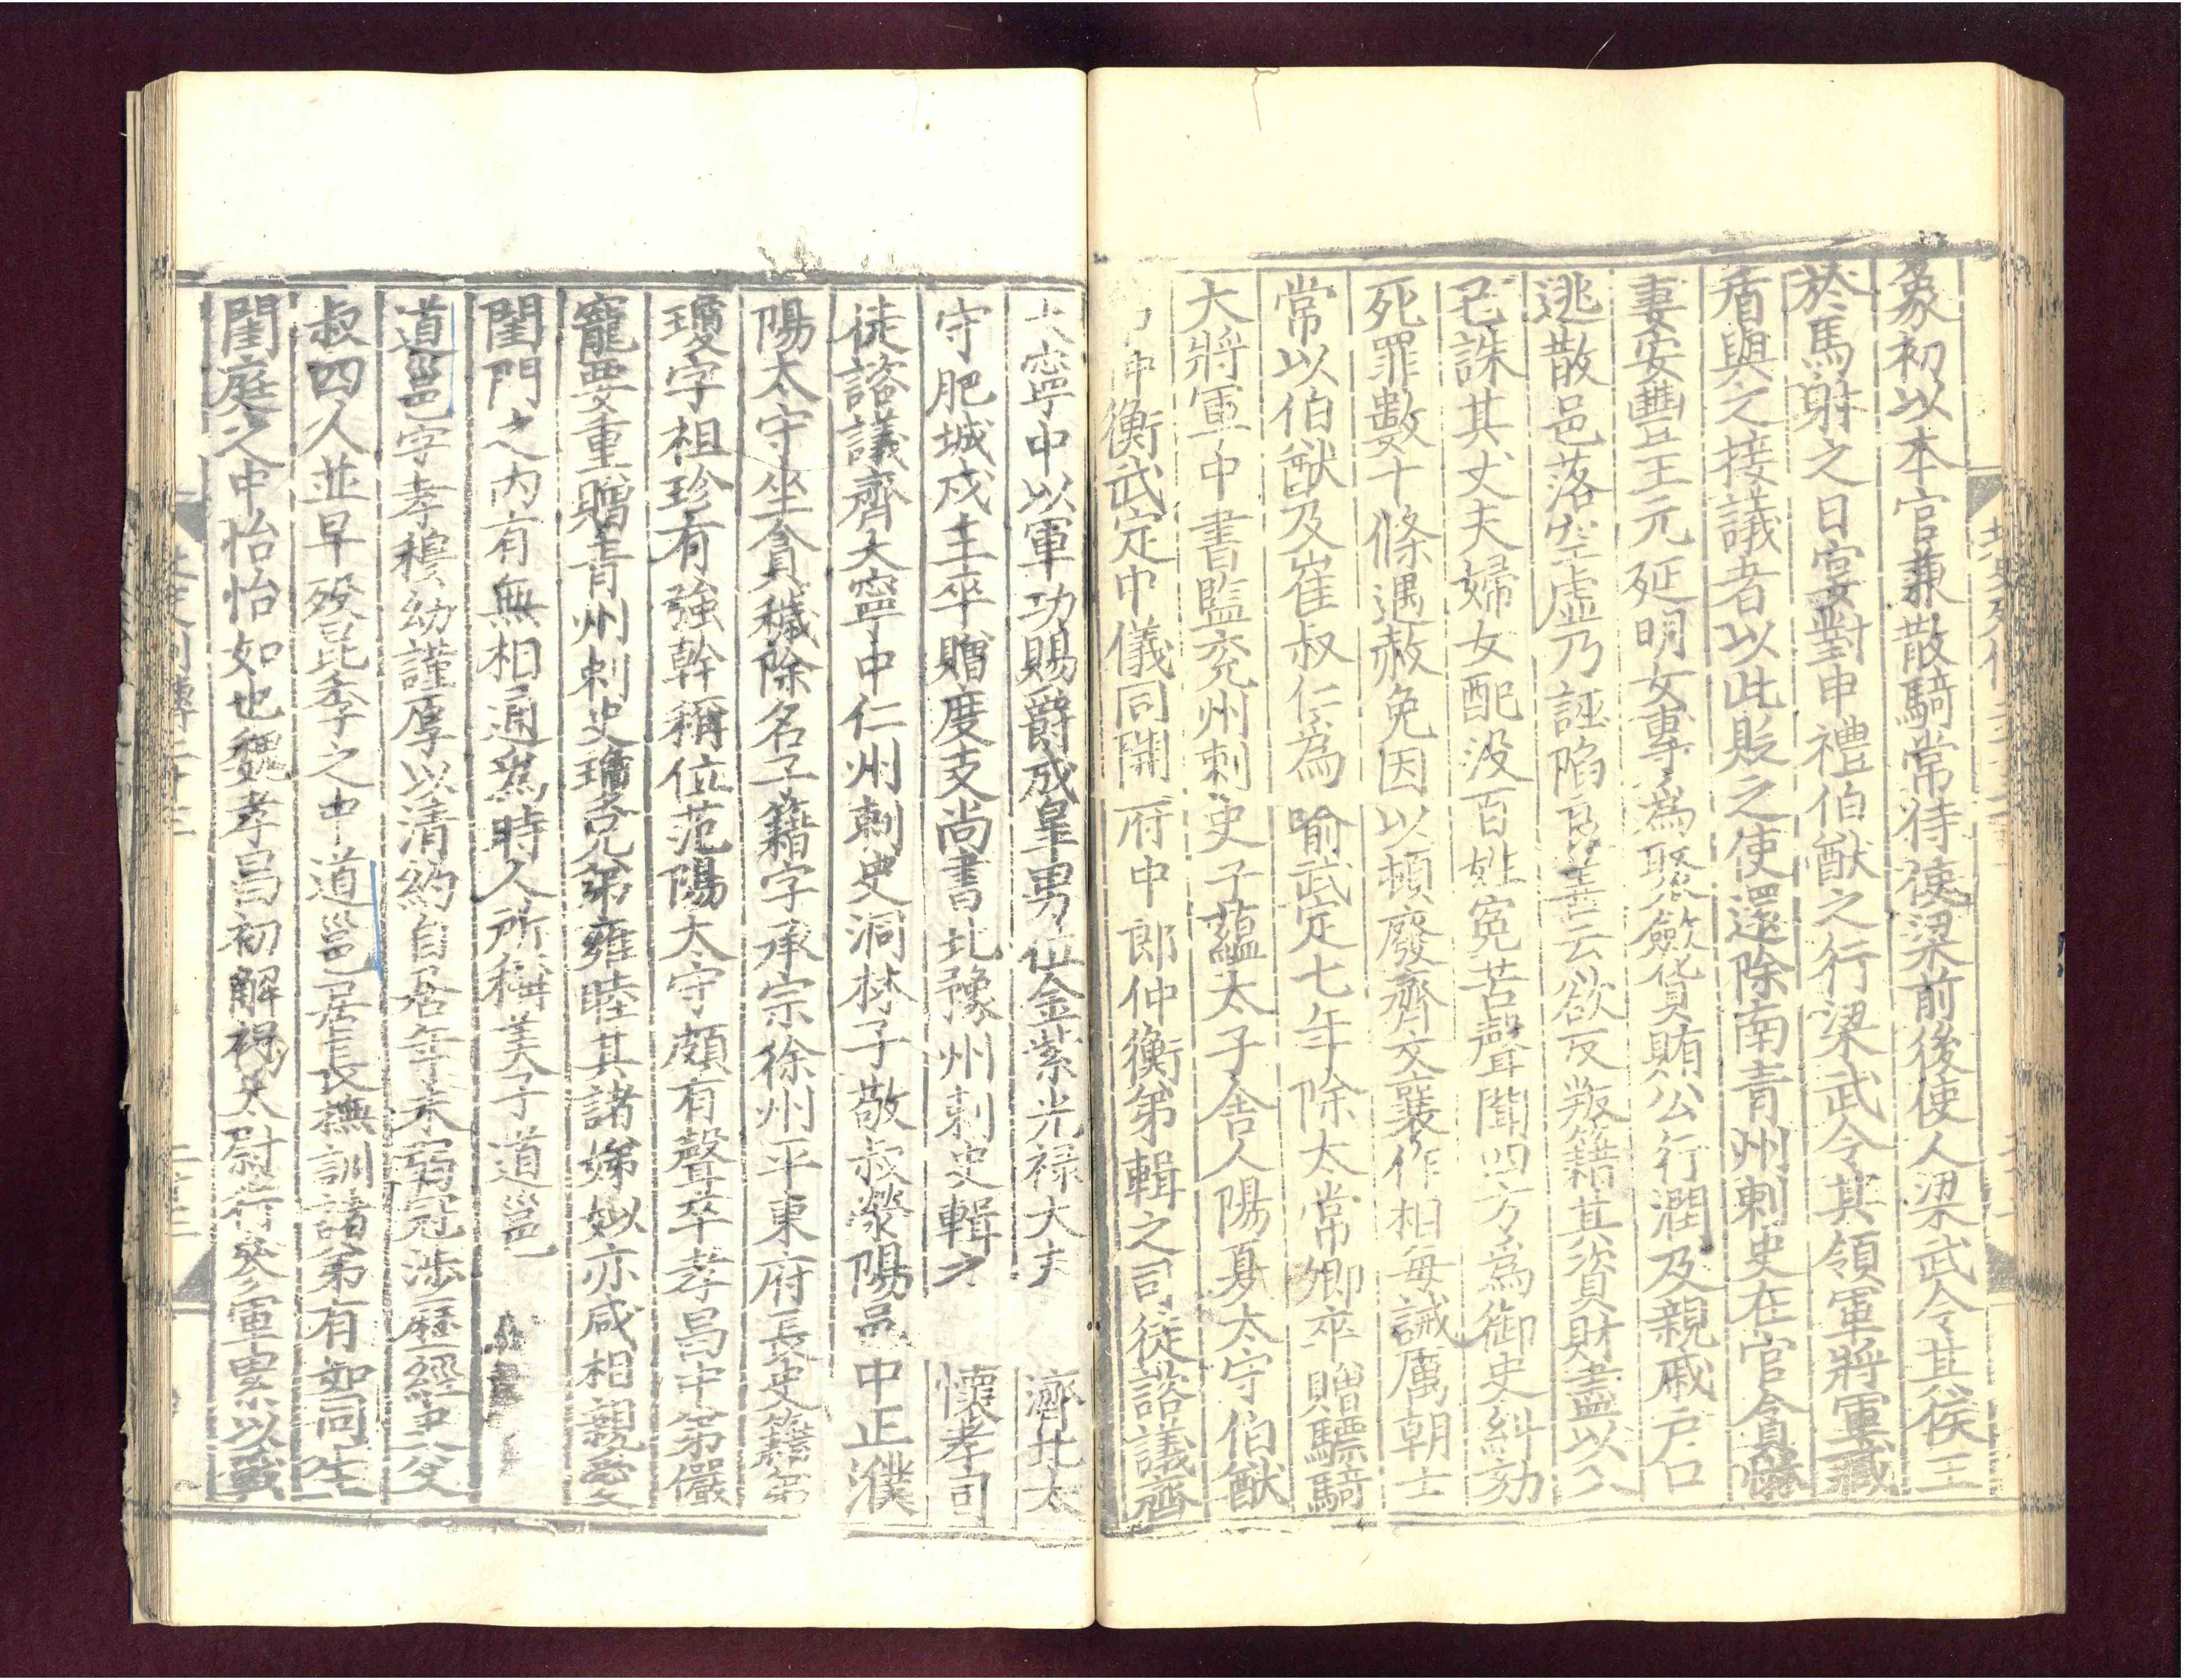 象初以本官兼散騎常侍使梁前後使人梁武令其侯王
於馬射之日宴對申禮伯猷之行梁武令其領軍將軍臧
盾與之接議者以此貶之使還除南青州刺史在官貪惏
妻安豐王元延明女專爲聚斂貨賄公行潤及親戚戶口
逃散邑落空虛乃誣陷良善云欲反叛籍其資財盡以入
己誅其丈夫婦女配沒百姓寃苦聲聞四方爲御史糾劾
死罪數十條遇赦免因以頓廢齊文襄作相每誡厲朝士
常以伯猷及崔叔仁為喻武定七年除太常卿卒贈驃騎
大將軍中書監兖州刺史子蘊太子舍人陽夏太守伯猷
仲衡武定中儀同開府中郎仲衡弟輯之司徒諮議齊
大寧中以軍功賜爵成皋男位金紫光祿大夫濟北太
守肥城戍主卒贈度支尚書北豫州刺史輯之懷孝司
徒諮議齊大寧中仁州刺史洞林子敬叔滎陽邑中正濮
陽太守坐貪穢除名子籍字承宗徐州平東府長史籍弟
瓊字祖珍有強幹稱位范陽太守頗有聲卒孝昌中弟儼
寵要重贈青州刺史瓊兄弟雍睦其諸娣姒亦咸相親愛
閨門之内有無相通爲時人所稱美子道邕
道邕字孝穆幼謹厚以清約自居年未弱冠涉歷經史父
叔四人並早歿昆季之中道邕居長撫訓諸弟有如同生
閨庭之中怡怡如也魏孝昌初解褐太尉行參軍累以戰
北史列傳二十三